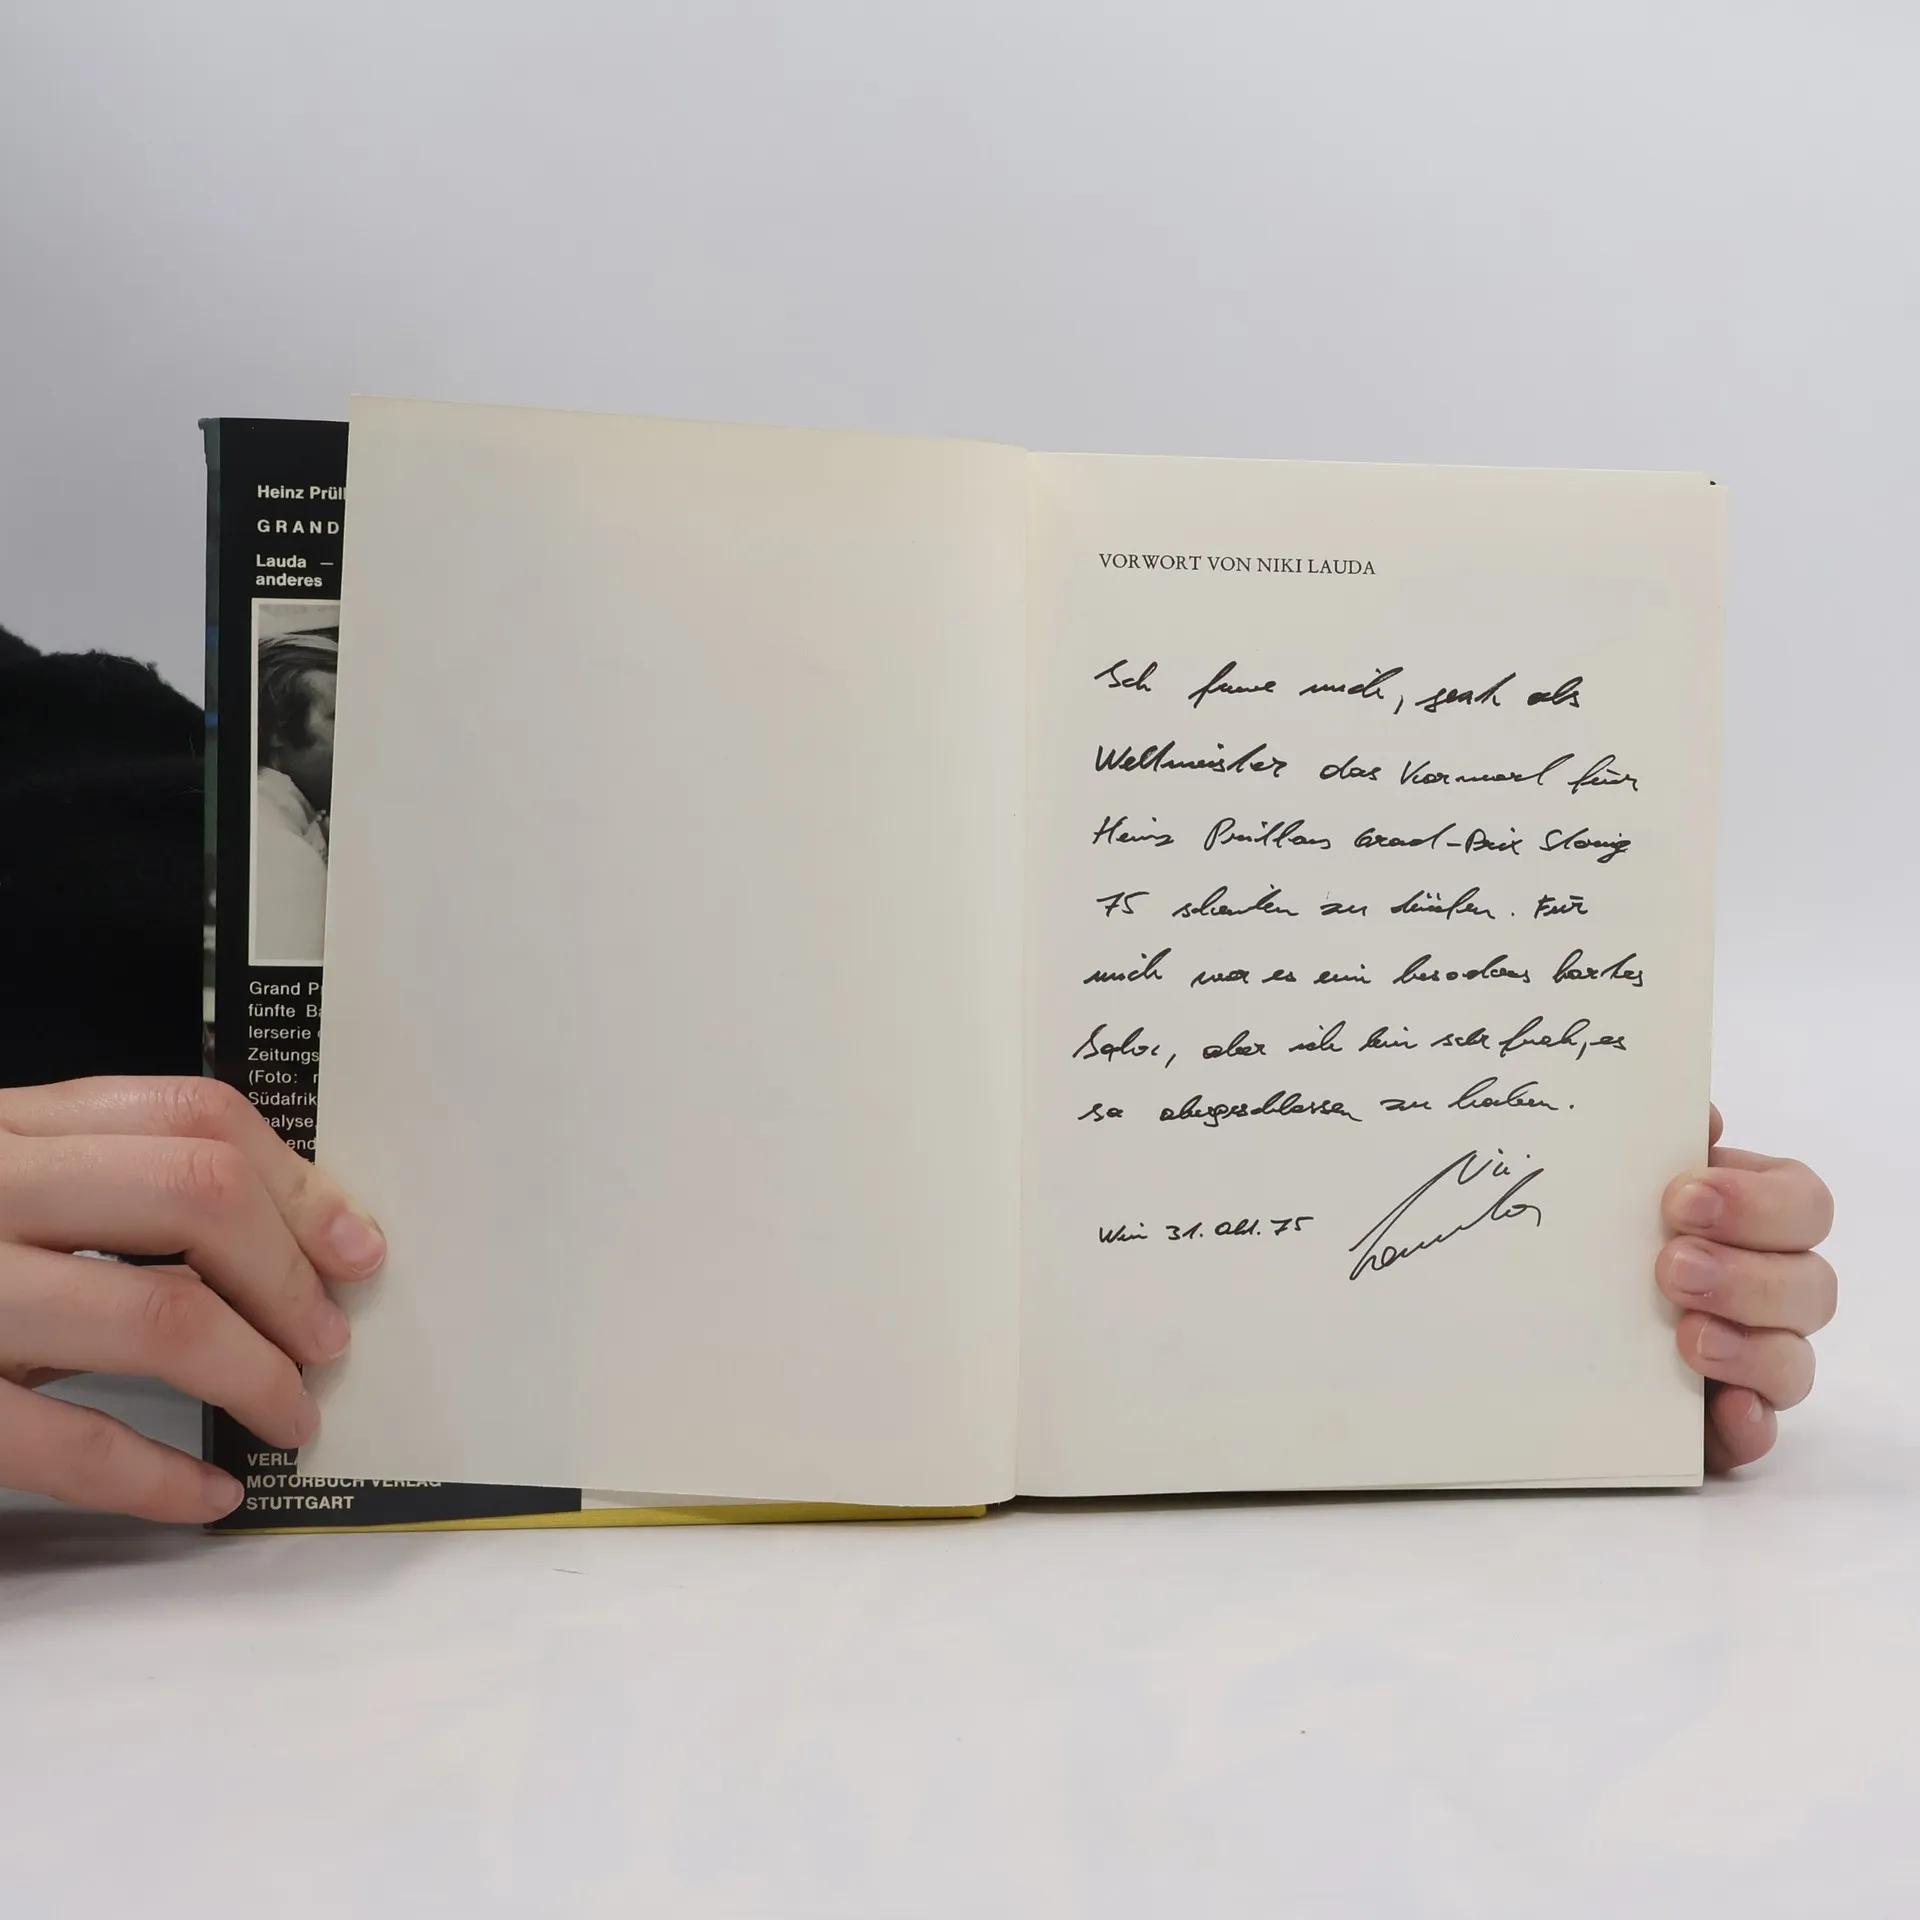 Heinz Prüll
GRAND
Lauda —
anderes
Grand P
fünfte B
lerserie
Zeitungs
(Foto:
Südafrik
alyse,
end
VERLA
MOTORBUCH VERLAG
STUTTGART
VORWORT VON NIKI LAUDA
Ich freue mich, jetzt als
Weltmeister das Vorwort für
Heinz Prüllers Grand-Prix Story
75 schreiben zu dürfen. Für
mich war es ein besonders hartes
Jahr, aber ich bin sehr froh, es
so abgeschlossen zu haben.
Wien 31. Okt. 75
Niki
Lauda